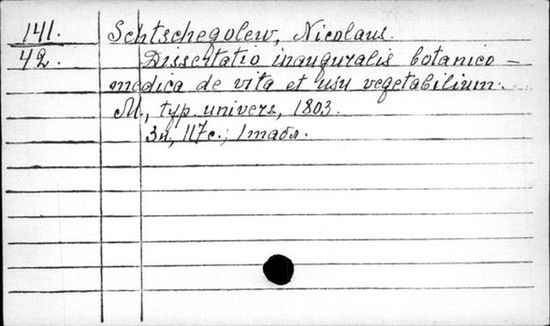 141. Schtschegolew, Nicolaus.
42. Dissertatio inauguralis botanico-
medica de vita et usu vegetabilium.
М., typ. univers, 1803.
3н, 117с.; 1табл.